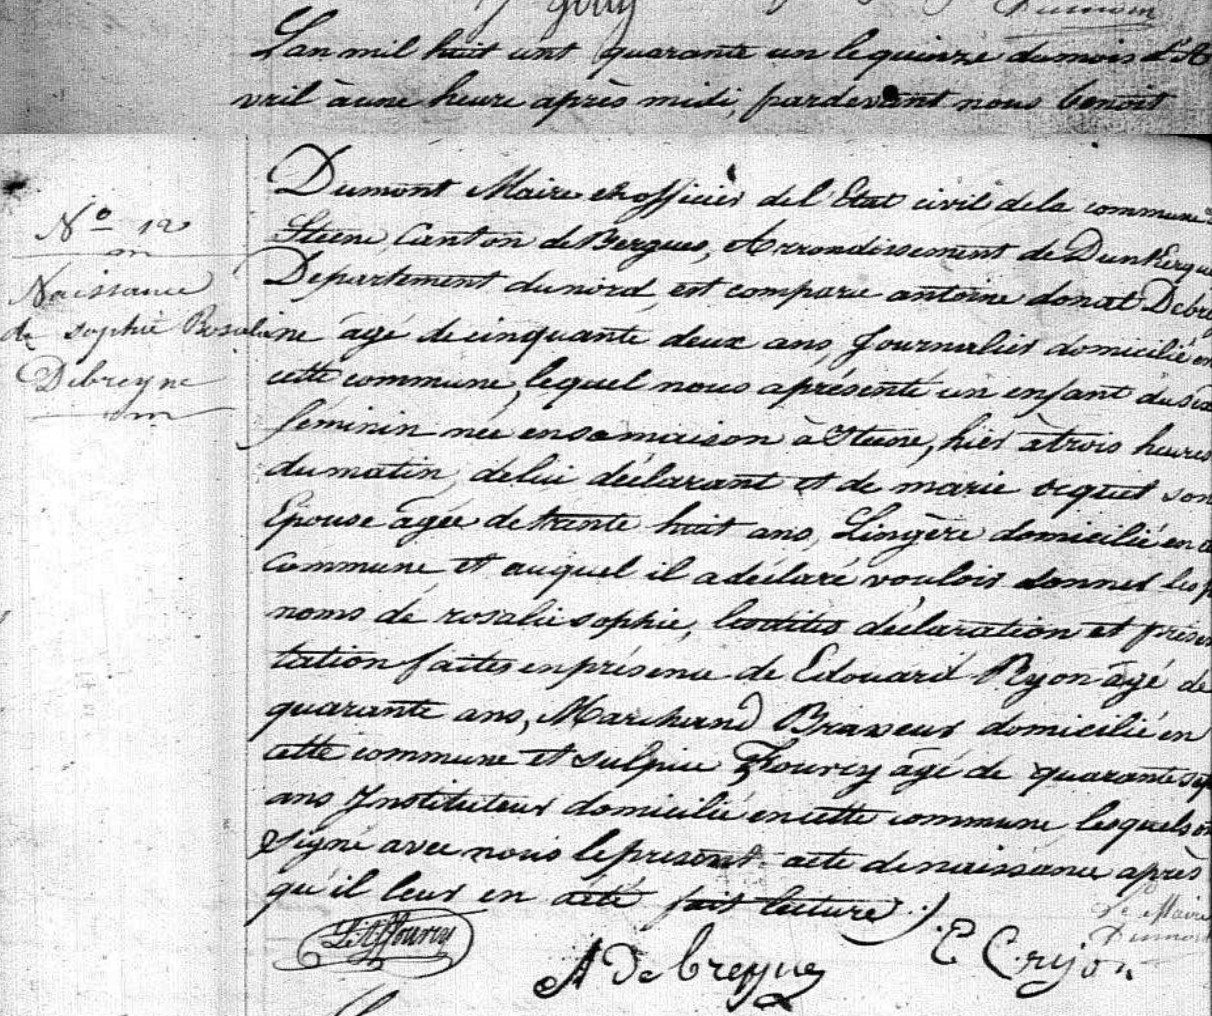 L'an mil huit cent quarante un le quinze du mois d'A
vril à une heure après midi, pardevant nous benoit
Dumont Maire et officier de l'Etat civil de la commune
Steene Canton de Bergues, Arrondissement de Dunkerque
Departement du nord, est comparu antoine donat Debrey
ne âgé de cinquante deux ans Journalier domicilié en
cette commune, lequel nous a présenté un enfant du sex
féminin née en sa maison à Steene, hier à trois heures
du matin, de lui déclarant et de marie ocquet son
Epouse âgée de trante huit ans, Lingère domicilié en c
Commune et auquel il a déclaré vouloir donner les p
noms de rosalie sophie, lesdites déclaration et présen
tation faites en présence de Edouard Ryon âgé de
quarante ans, Marchand Brasseur domicilié en
cette commune et sulpice Fourcy âgé de quarante sep
ans Instituteur domicilié en cette commune lesquels on
signé avec nous le present acte de naissance après
qu'il leur en a été fait lecture
Nº 12
Naissance
de sophie Rosalie
Debreyne
Le Maire
Dumont
Fourcy
A Debreyne
E C ryon
Dumont